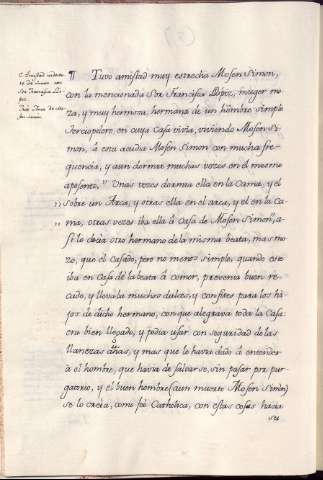 ¶ Tuvo amistad muy estrecha Mosen Simon,
con la mencionada Sor Francisca Lopez, muger mo-
za, y muy hermosa, hermana de un hombre simple
Terciopelero, en cuya Casa vivia, viviendo Mosen Si-
mon, à ella acudia Mosen Simon con mucha fre-
quencia, y aun dormia muchas vezes en el mesmo
aposento. Unas vezes dormia ella en la Cama, y el
sobre un Arca; y otras ella en el arca, y el en la Ca-
ma, otras vezes iba ella à Casa de Mosen Simon, a-
si lo decia otro hermano de la misma beata, mas mo-
zo, que el Casado, pero no menos simple, quando ese
iba en Casa de la beata à comer, prevenia buen re-
cado, y llevaba muchos dulzes, y confites para los hi-
jos de dicho hermano, con que alegrava toda la Casa
era bien llegado, y podia usar con seguridad de las
llanezas dichas, y mas que le havia dado à entender
à el hombre, que havia de salvarse, sin pasar por pur-
gatorio, y el buen hombre (aun muerto Mosen Simon)
se lo creia, como fè Catholica, con estas cosas hacia
su